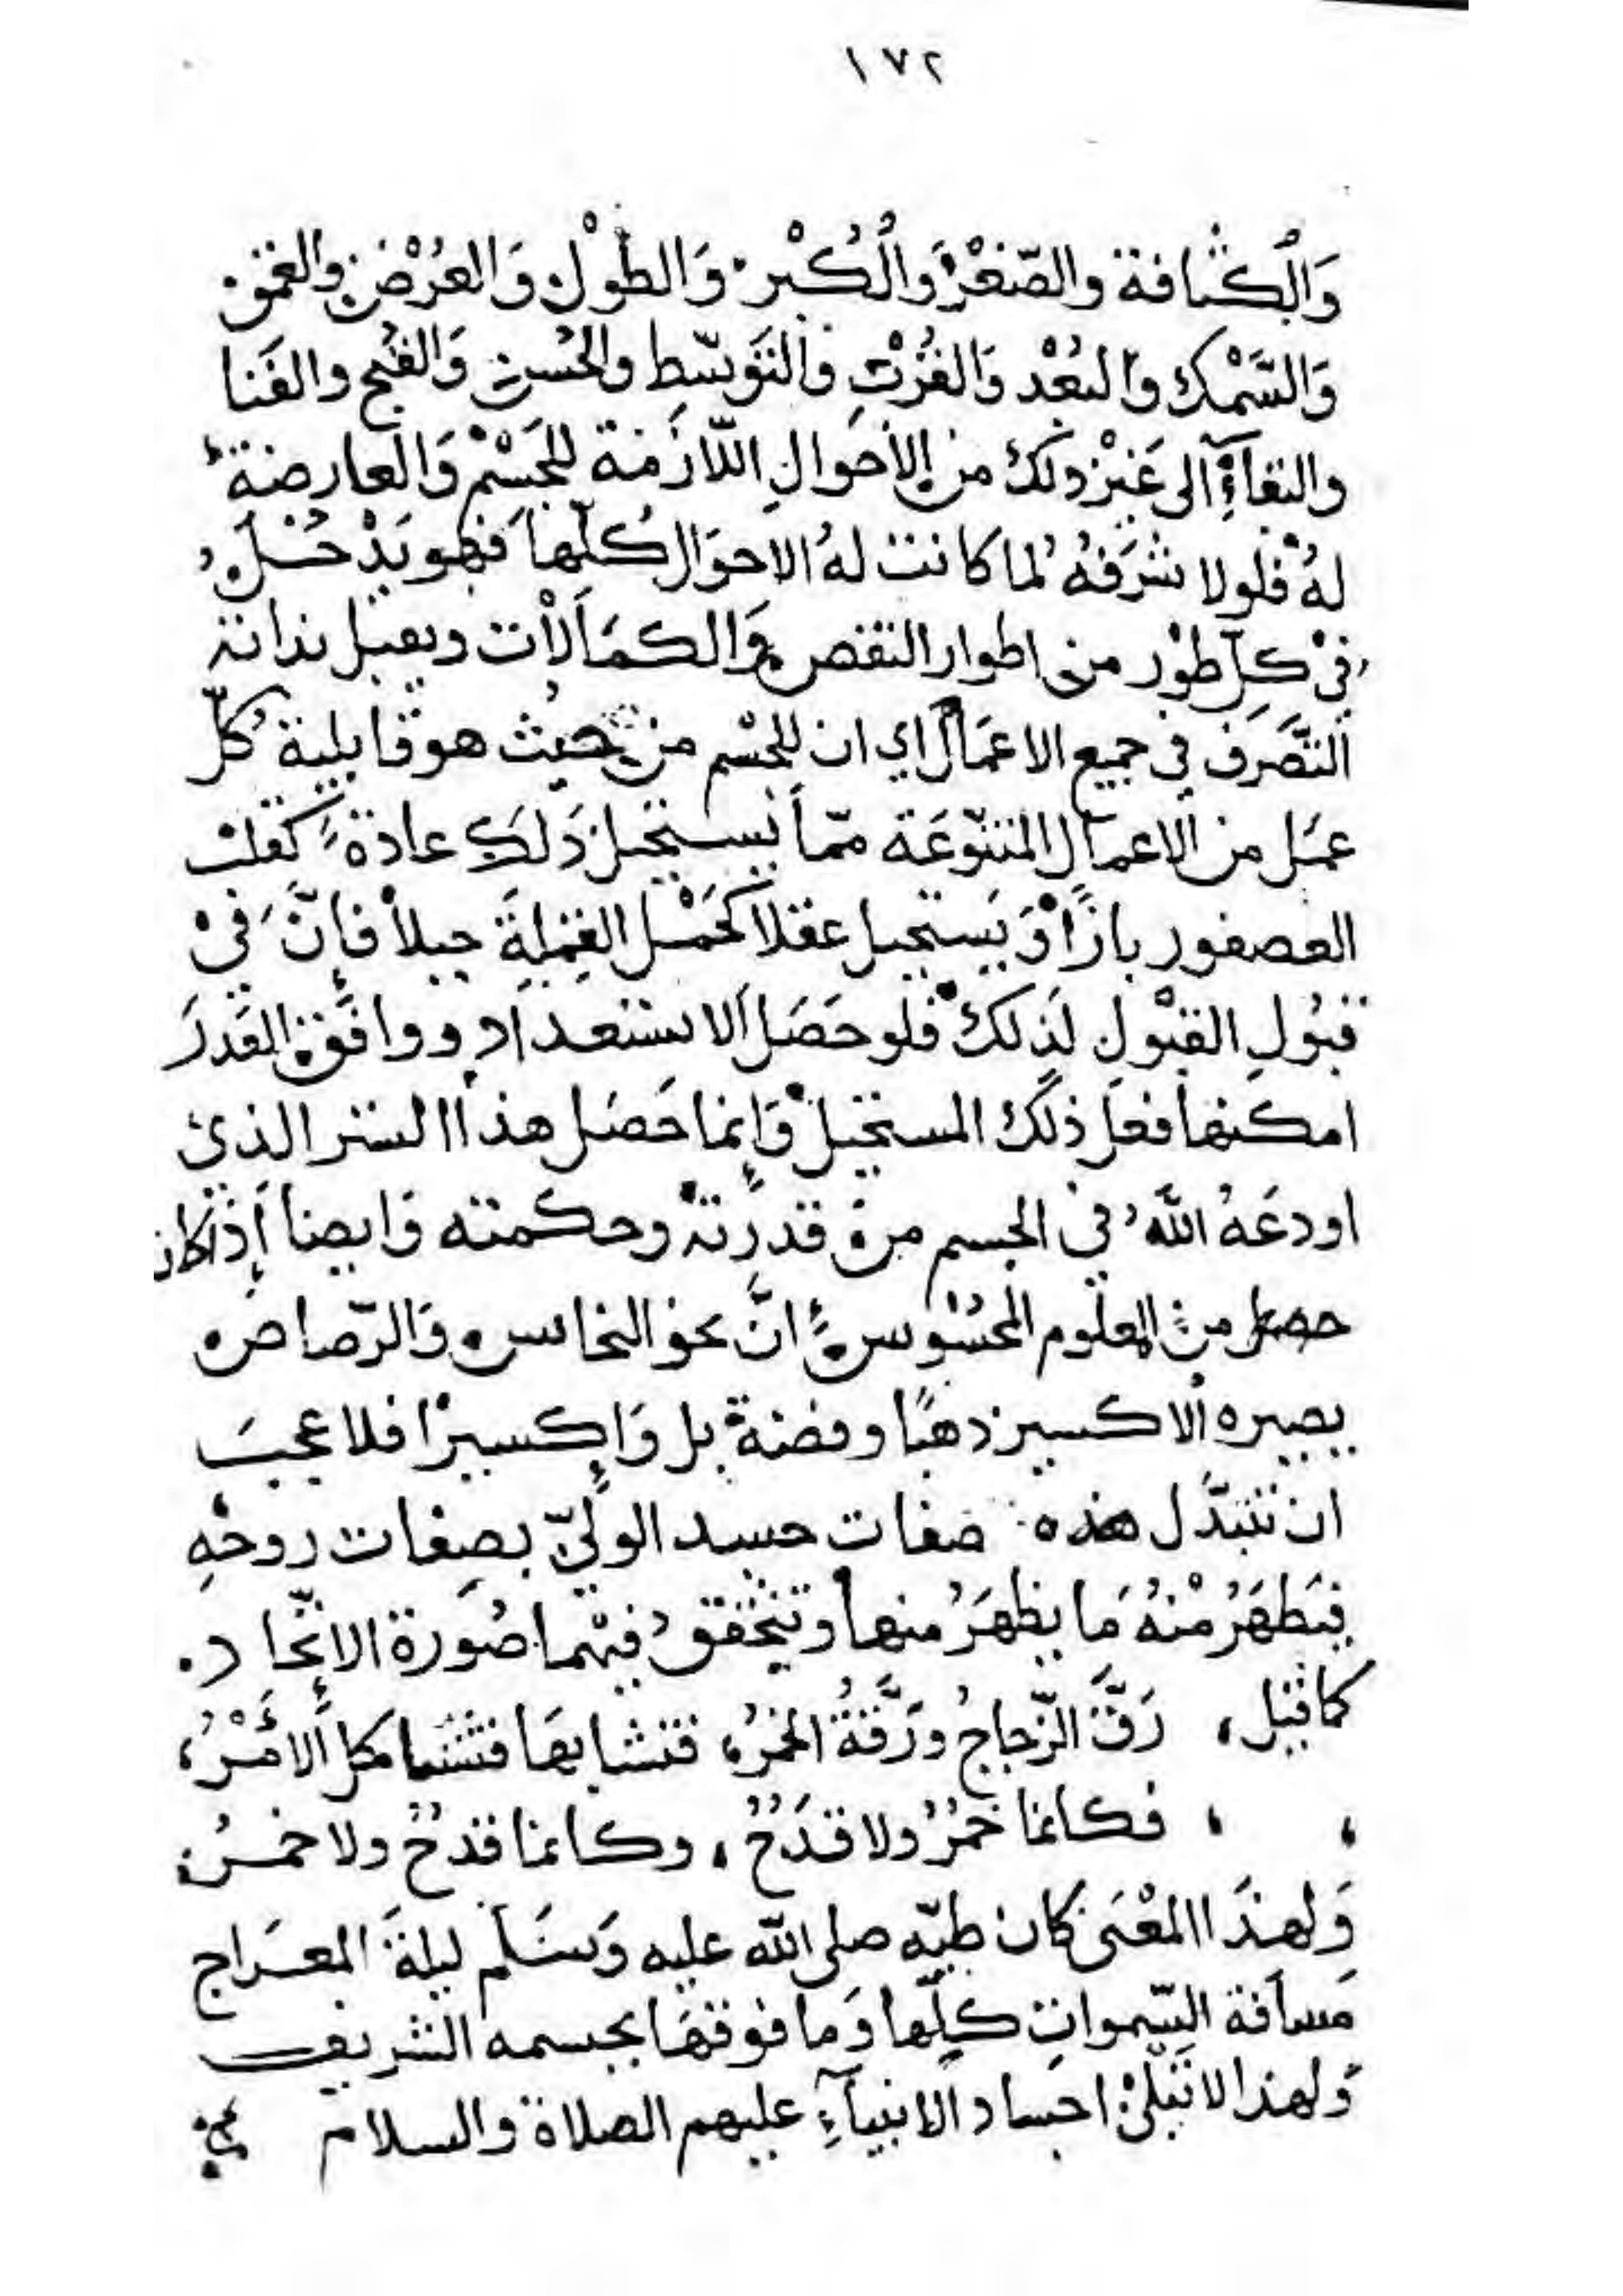 ١٧٢
وَالْكثافة والصّغْر وَالْكُبْر وَالطوْل وَالعُرْض والعمق
وَالسَّمْك والبُعْد وَالقُرْبِ والتوَسّطِ والحُسن وَالقُبح والفَنا
والبقآءِ الى غَيْر ذلك من الأحوالِ اللّازمة للجَسْم وَالعارضة
لهُ فلولا شَرَفهُ لما كانت لهُ الاحوَال كُلّها فهو يَدْخُل
في كلّ طوْر من اطوار النقص وَالكمَالاْت ويقبل بذاته
التَّصَرف في جميع الاعمَال اي ان للجسْم من حيْث هو قابلية كُلّ
عمَل من الاعمال المتنوّعَة ممّا يسْتحيل ذَلكَ عادة كقلب
العصفور بازًا وَيَستحيل عقلا كحَمْل القملةِ جبلاً فإنَّ فيْ
قبُولِ القبْولِ لذلك فلو حَصَل الاستعداد ووافقه القدَرَ
امكنها فعل ذلك المستحيل وَإنما حَصَل هذا السر الذي
اودعَهُ اللّهُ في الجسم من قدرته وحكمته وَايضا إذا كان
حصل من المعلوم المحسُوس انَّ نحو النحاس وَالرّصاص
يصيره الاكسير ذهبًا وفضة بل وَإكسيرًا فلا عجبَ
ان تتبدَّل هذه صفات جسد الوليّ بصِفات روحهِ
فيَظهَرُ مْنهُ مَا يظهَرُ منها وتتحقق فيْهما صُورة الاتّحاد.
كما قيل، رَقَّ الزّجاجُ ورَقَّة الخمرُ، فتشابها فتشاكل الأمْرُ،
، ، فكانما خمْرُ ولا قدَحُ، وكانما قدحُ ولا خمرُ
وَلهذا المعْنى كان طيّه صلى اللّه عليه وَسَلم ليلةَ المعراج
مَسافة السّموات كلّها وَما فوقهَا بجسمه الشريف
وَلهذا لا تبْلىْ اجساد الانبيآءِ عليهم الصلاة والسلام